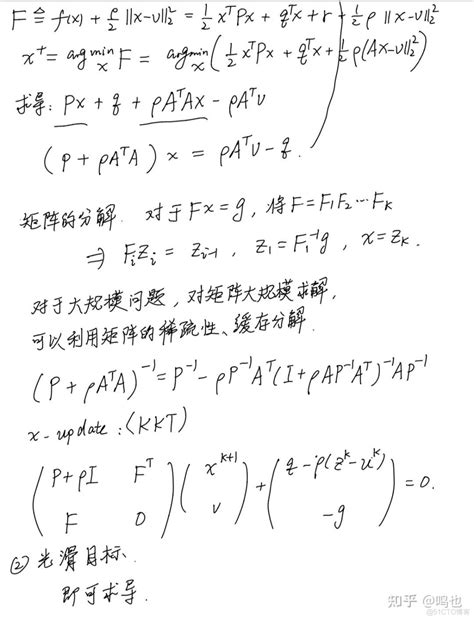 F ≜ f(x) + ρ/2 ||x-v||₂² = 1/2 xᵀPx + qᵀx + r + 1/2 ρ ||x-v||₂²
x⁺ = argmin_x F = argmin_x (1/2 xᵀPx + qᵀx + 1/2 ρ(Ax-v||₂²)
求导: Px + q + ρAᵀAx - ρAᵀv
(P + ρAᵀA) x = ρAᵀv - q.
矩阵的分解. 对于 Fx = g, 将 F = F₁F₂…Fₖ
⇒ FᵢZᵢ = Zᵢ₋₁, Z₁ = F₁⁻¹g, x = Zₖ.
对于大规模问题, 对矩阵大规模求解,
可以利用矩阵的稀疏性、缓存分解.
(P + ρAᵀA)⁻¹ = P⁻¹ - ρP⁻¹Aᵀ(I + ρAP⁻¹Aᵀ)⁻¹AP⁻¹
x-update: (KKT)
(P+ρI Fᵀ) (xᵏ⁺¹) + (q-ρ(zᵏ-uᵏ)) = 0.
(F 0) (v) (-g)
② 光滑目标.
即可求导.
知乎 @鸣也
@51CTO博客